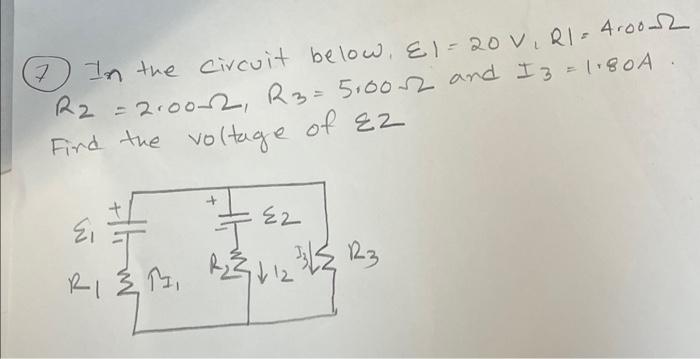 7 In the circuit below, ε1 = 20 V, R1 = 4.00Ω
R2 = 2.00Ω, R3 = 5.00Ω and I3 = 1.80A.
Find the voltage of ε2
+ +
ε1 ε2
R1 I1 R2 I2 I3 R3